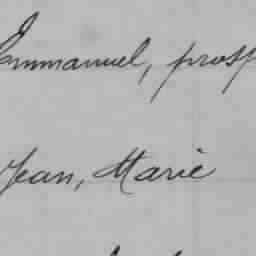 Emmanuel, prosp
Jean, Marie